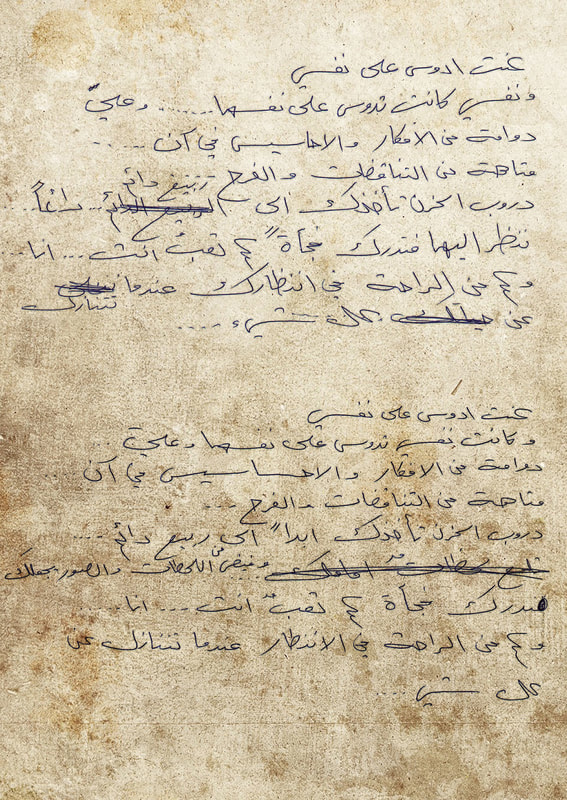 عنت ادوس على نفسي
ونفسي كانت تدوس على نفسها...... وعليّ
دوامة من الافكار والاحاسيس في آن ....
متاهة من التناقضات والفرح ربيع دائم
دروب الحزن تأخذك الى ... دائماً..
ننظر اليها فتدرك فجأة كم تعب انت ... انا..
وكم من الراحة في انتظارك عندما
تتنازل
عن كل شيء ....
عنت ادوس على نفسي
وكانت نفسي تدوس على نفسها وعليّ ..
دوامة من الافكار والاحساسيس في آن ...
متاهة من التناقضات والفرح ...
دروب الحزن تأخذك ابداً الى ربيع دائم ....
وفيض من اللحظات والصور يجعلك
تدرك فجأة كم تعب انت ... انا.....
وكم من الراحة في الانتظار عندما تتنازل عن
كل شيء ....